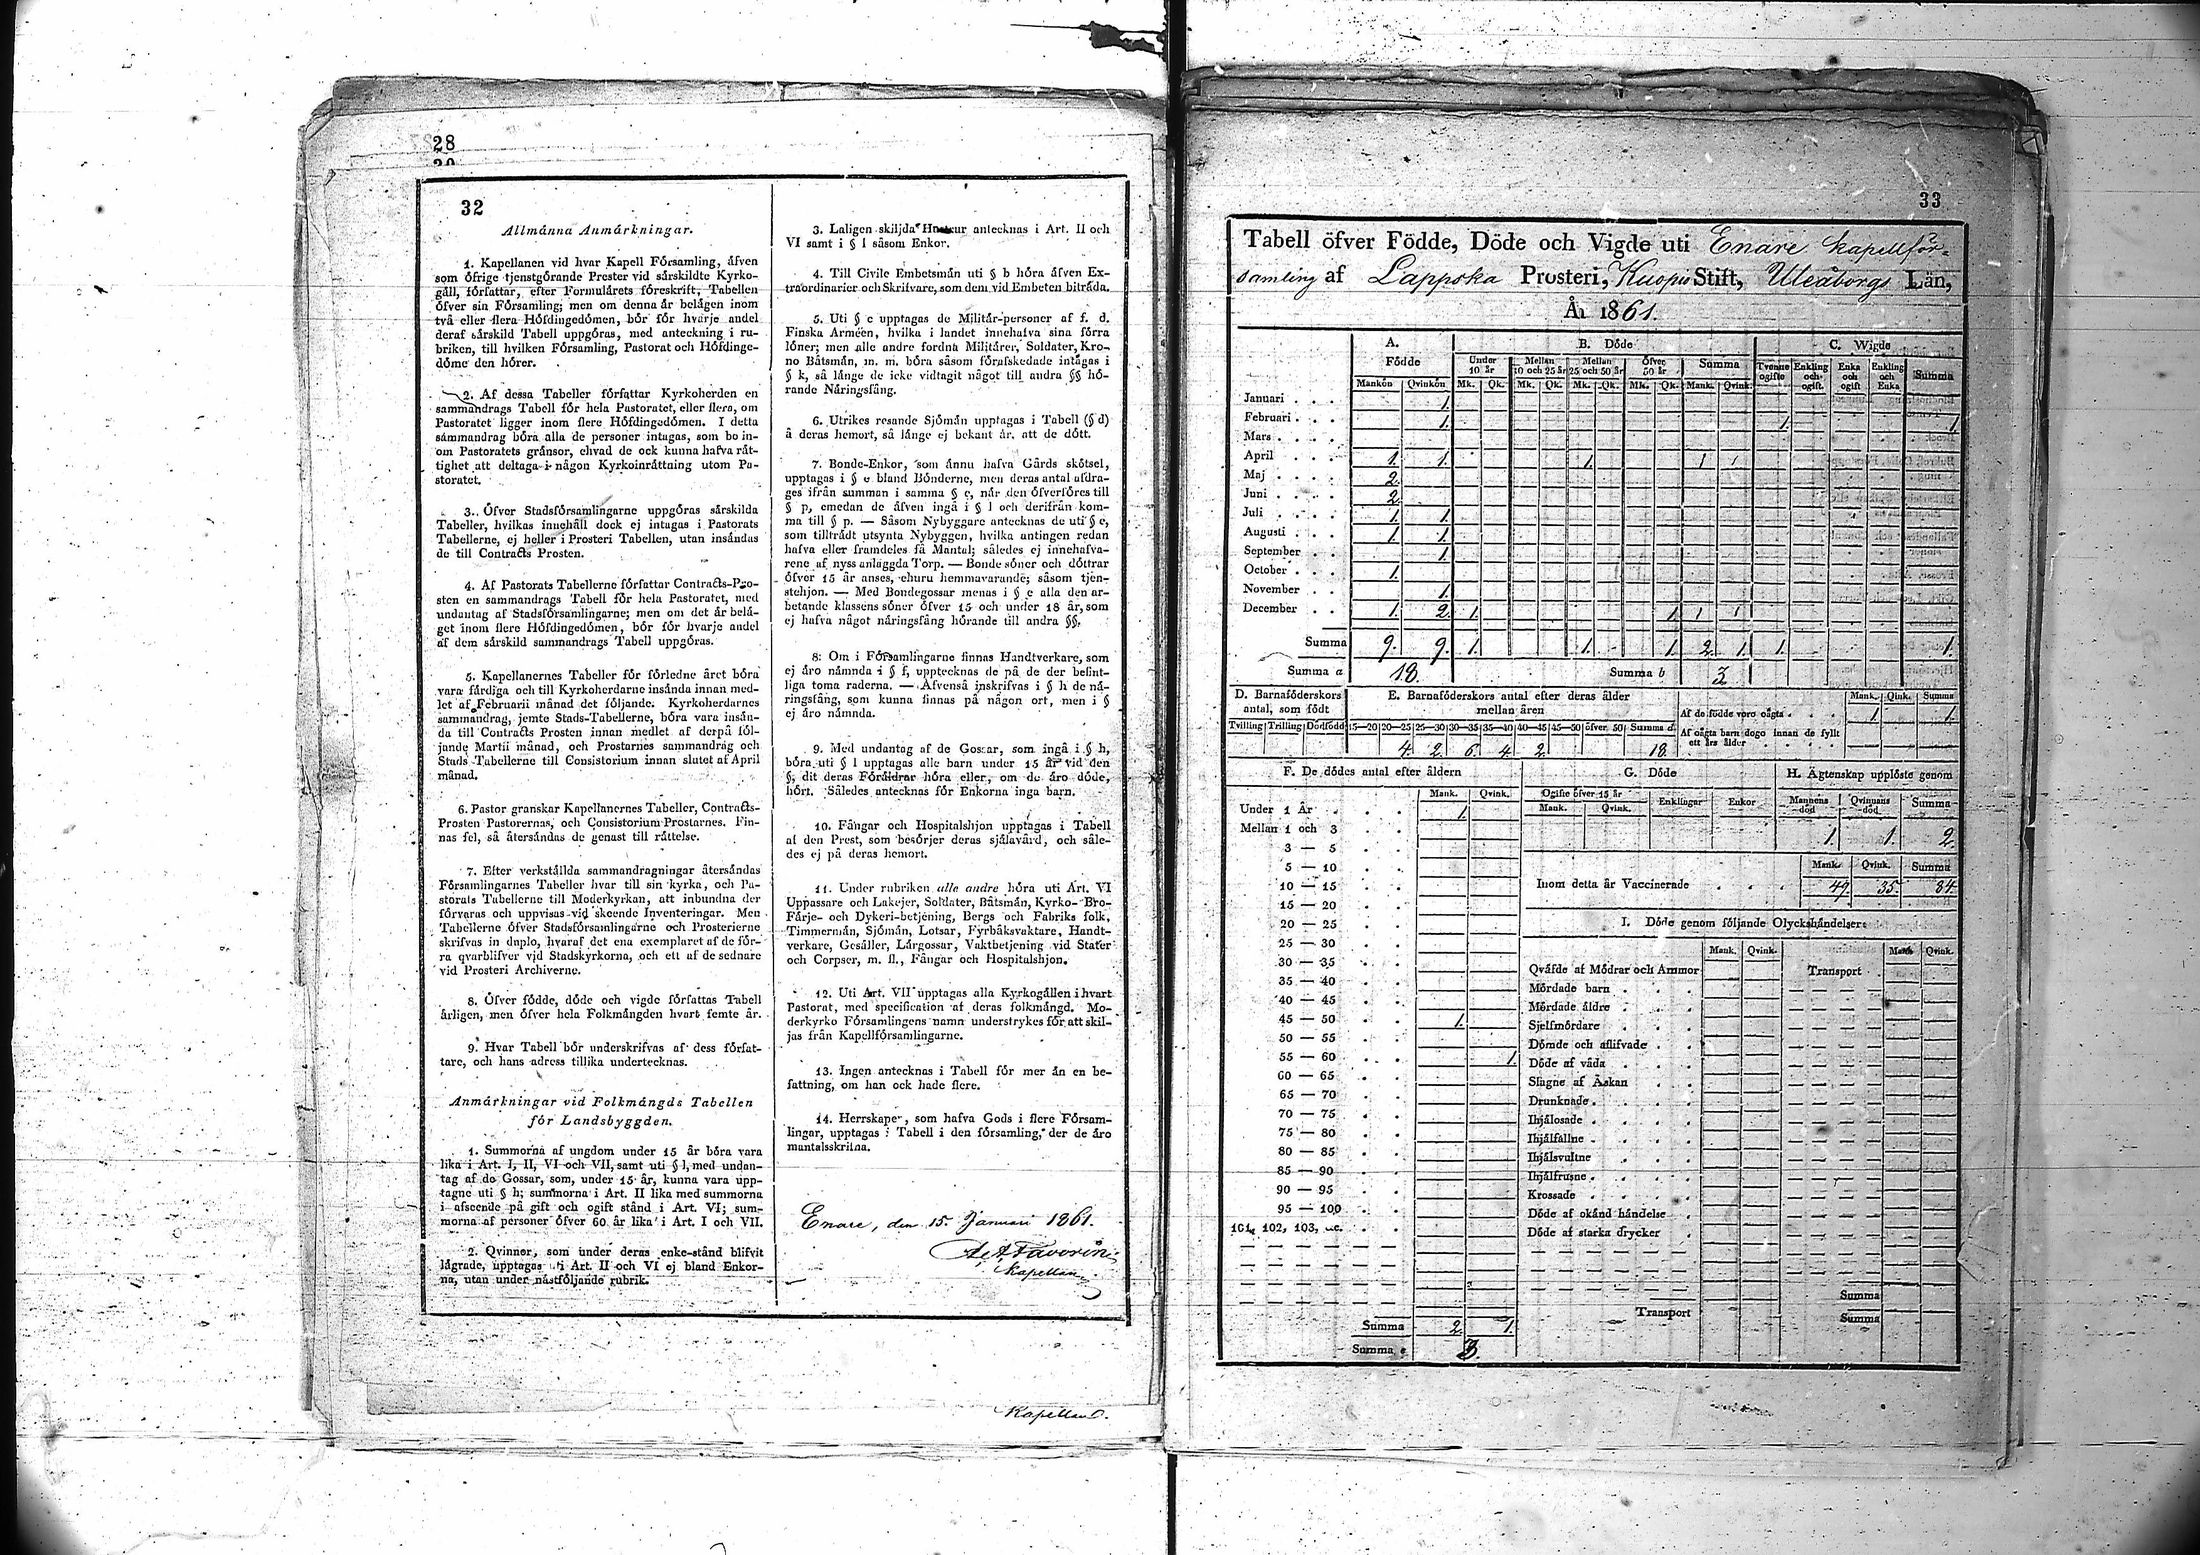 28
32
Allmänna Anmärkningar.
1. Kapellanen vid hvar Kapell Församling, äfven
som öfrige tjenstgörande Prester vid särskildte Kyrko-
gäll, författar, efter Formulärets föreskrift, Tabellen
öfver sin Församling; men om denna är belägen inom
två eller flera Höfdingedömen, bör för hvarje andel
deraf särskild Tabell uppgöras, med anteckning i ru-
briken, till hvilken Församling, Pastorat och Höfdinge-
döme den hörer.
2. Af dessa Tabeller författar Kyrkoherden en
sammandrags Tabell för hela Pastoratet, eller flera, om
Pastoratet ligger inom flere Höfdingedömen. I detta
sammandrag böra alla de personer intagas, som bo in-
om Pastoratets gränsor, ehvad de ock kunna hafva rät-
tighet att deltaga i någon Kyrkoinrättning utom Pa-
storatet.
3. Öfver Stadsförsamlingarne uppgöras särskilda
Tabeller, hvilkas innehåll dock ej intagas i Pastorats
Tabellerne, ej heller i Prosteri Tabellen, utan insändas
de till Contracts Prosten.
4. Af Pastorats Tabellerne författar Contracts-Pro-
sten en sammandrags Tabell för hela Pastoratet, med
undantag af Stadsförsamlingarne; men om det är belä-
get inom flere Höfdingedömen, bör för hvarje andel
af dem särskild sammandrags Tabell uppgöras.
5. Kapellanernes Tabeller för förledne året böra
vara färdiga och till Kyrkoherdarne insända innan med-
let af Februarii månad det följande. Kyrkoherdarnes
sammandrag, jemte Stads-Tabellerne, böra vara insän-
da till Contracts Prosten innan medlet af derpå föl-
jande Martii månad, och Prostarnes sammandrag och
Stads Tabellerne till Consistorium innan slutet af April
månad.
6. Pastor granskar Kapellanernes Tabeller, Contracts-
Prosten Pastorernas, och Consistorium Prostarnes. Fin-
nas fel, så återsändas de genast till rättelse.
7. Efter verkställda sammandragningar återsändas
Församlingarnes Tabeller hvar till sin kyrka, och Pa-
storats Tabellerne till Moderkyrkan, att inbundna der
förvaras och uppvisas vid skeende Inventeringar. Men
Tabellerne öfver Stadsförsamlingarne och Prosterierne
skrifvas in duplo, hvaraf det ena exemplaret af de för-
ra qvarblifver vid Stadskyrkorna, och ett af de sednare
vid Prosteri Archiverne.
8. Öfver födde, döde och vigde författas Tabell
årligen, men öfver hela Folkmängden hvart femte år.
9. Hvar Tabell bör underskrifvas af dess förfat-
tare, och hans adress tillika undertecknas.
Anmärkningar vid Folkmängds Tabellen
för Landsbyggden.
1. Summorna af ungdom under 15 år böra vara
lika i Art. I, II, VI och VII, samt uti § l, med undan-
tag af de Gossar, som, under 15 år, kunna vara upp-
tagne uti § h; summorna i Art. II lika med summorna
i afseende på gift och ogift stånd i Art. VI; sum-
morna af personer öfver 60 år lika i Art. I och VII.
2. Qvinnor, som under deras enke-stånd blifvit
lägrade, upptagas uti Art. II och VI ej bland Enkor-
na, utan under nästföljande rubrik.
3. Laligen skiljda Hustrur antecknas i Art. II och
VI samt i § l såsom Enkor.
4. Till Civile Embetsmän uti § b höra äfven Ex-
traordinarier och Skrifvare, som dem vid Embeten biträda.
5. Uti § c upptagas de Militär-personer af f. d.
Finska Arméen, hvilka i landet innehafva sina förra
löner; men alle andre fordna Militärer, Soldater, Kro-
no Båtsmän, m. m. böra såsom förafskedade intagas i
§ k, så länge de icke vidtagit något till andra §§ hö-
rande Näringsfång.
6. Utrikes resande Sjömän upptagas i Tabell (§ d)
å deras hemort, så länge ej bekant är, att de dött.
7. Bonde-Enkor, som ännu hafva Gårds skötsel,
upptagas i § e bland Bönderne, men deras antal afdra-
ges ifrån summan i samma § e, när den öfverföres till
§ p, emedan de äfven ingå i § l och derifrån kom-
ma till § p. — Såsom Nybyggare antecknas de uti § e,
som tillträdt utsynta Nybyggen, hvilka antingen redan
hafva eller framdeles få Mantal; således ej innehafva-
rene af nyss anlaggda Torp. — Bonde söner och döttrar
öfver 15 år anses, ehuru hemmavarande; såsom tjen-
stehjon. — Med Bondegossar menas i § e alla den ar-
betande klassens söner öfver 15 och under 18 år, som
ej hafva något näringsfång hörande till andra §§.
8. Om i Församlingarne finnas Handtverkare, som
ej äro nämnda i § f, upptecknas de på de der befint-
liga toma raderna. — Äfvenså inskrifvas i § h de nä-
ringsfång, som kunna finnas på någon ort, men i §
ej äro nämnda.
9. Med undantag af de Gossar, som ingå i § h,
böra uti § l upptagas alle barn under 15 år vid den
§, dit deras Föräldrar höra eller, om de äro döde,
hört. Således antecknas för Enkorna inga barn.
10. Fångar och Hospitalshjon upptagas i Tabell
af den Prest, som besörjer deras själavård, och såle-
des ej på deras hemort.
11. Under rubriken alle andre höra uti Art. VI
Uppassare och Lakejer, Soldater, Båtsmän, Kyrko- Bro-
Färje- och Dykeri-betjening, Bergs och Fabriks folk,
Timmermän, Sjömän, Lotsar, Fyrbåksvaktare, Handt-
verkare, Gesäller, Lärgossar, Vaktbetjening vid Stater
och Corpser, m. fl., Fångar och Hospitalshjon.
12. Uti Art. VII upptagas alla Kyrkogällen i hvart
Pastorat, med specification af deras folkmängd. Mo-
derkyrko Församlingens namn understrykes för att skil-
jas från Kapellförsamlingarne.
13. Ingen antecknas i Tabell för mer än en be-
fattning, om han ock hade flere.
14. Herrskaper, som hafva Gods i flere Försam-
lingar, upptagas i Tabell i den församling, der de äro
mantalsskrifna.
Enare, den 15. Januari 1861.
Kapellan
Kapellan
33
Tabell öfver Födde, Döde och Vigde uti Enare kapellför-
samling af Lappska Prosteri, Kuopio Stift, Uleåborgs Län,
År 1861.
A. Födde B. Döde C. Wigde
Under 10 år Mellan 10 och 25 år Mellan 25 och 50 år Öfver 50 år Summa Tvenne ogifte Enkling och ogift Enka och ogift Enkling och Enka Summa
Mankön Qvinkön Mk. Qk. Mk. Qk. Mk. Qk. Mk. Qk. Mank. Qvink.
Januari . . . 1.
Februari . . . 1. 1. 1.
Mars . . .
April . . . 1. 1. 1. 1 1
Maj . . . 2.
Juni . . . 2.
Juli . . . 1. 1.
Augusti . . . 1. 1.
September . . 1.
October . . . 1.
November . . 1.
December . . 1. 2. 1. 1 1 1
Summa 9. 9. 1. 1. 1 2. 1. 1. 1.
Summa a 18. Summa b 3.
D. Barnaföderskors antal, som födt
Tvilling Trilling Dödfödd
E. Barnaföderskors antal efter deras ålder mellan åren
15—20 20—25 25—30 30—35 35—40 40—45 45—50 öfver 50 Summa d.
4. 2. 6. 4. 2. 18.
Mank. Qink. Summa
Af de födde voro oägta . . . 1. 1.
Af oägta barn dogo innan de fyllt
ett års ålder
F. De dödes antal efter åldern
Mank. Qvink.
Under 1 År . . . 1.
Mellan 1 och 3
3 — 5
5 — 10
10 — 15
15 — 20
20 — 25
25 — 30
30 — 35
35 — 40
40 — 45
45 — 50 1.
50 — 55
55 — 60 1.
60 — 65
65 — 70
70 — 75
75 — 80
80 — 85
85 — 90
90 — 95
95 — 100
101, 102, 103, .c.
Summa 2. 1.
Summa e 3.
G. Döde
Ogifte öfver 15 år Enklingar Enkor
Mank. Qvink.
H. Ägtenskap upplöste genom
Mannens död Qvinnans död Summa
1. 1. 2.
Mank. Qvink. Summa
Inom detta år Vaccinerade . . . 49. 35. 84.
I. Döde genom följande Olyckshändelser:
Mank. Qvink. Mank. Qvink.
Qväfde af Mödrar och Ammor Transport
Mördade barn
Mördade äldre
Sjelfmördare
Dömde och aflifvade
Döde af våda
Slagne af Åskan
Drunknade
Ihjälosade
Ihjälfallne
Ihjälsvultne
Ihjälfrusne
Krossade
Döde af okänd händelse
Döde af starka drycker
Summa
Transport Summa